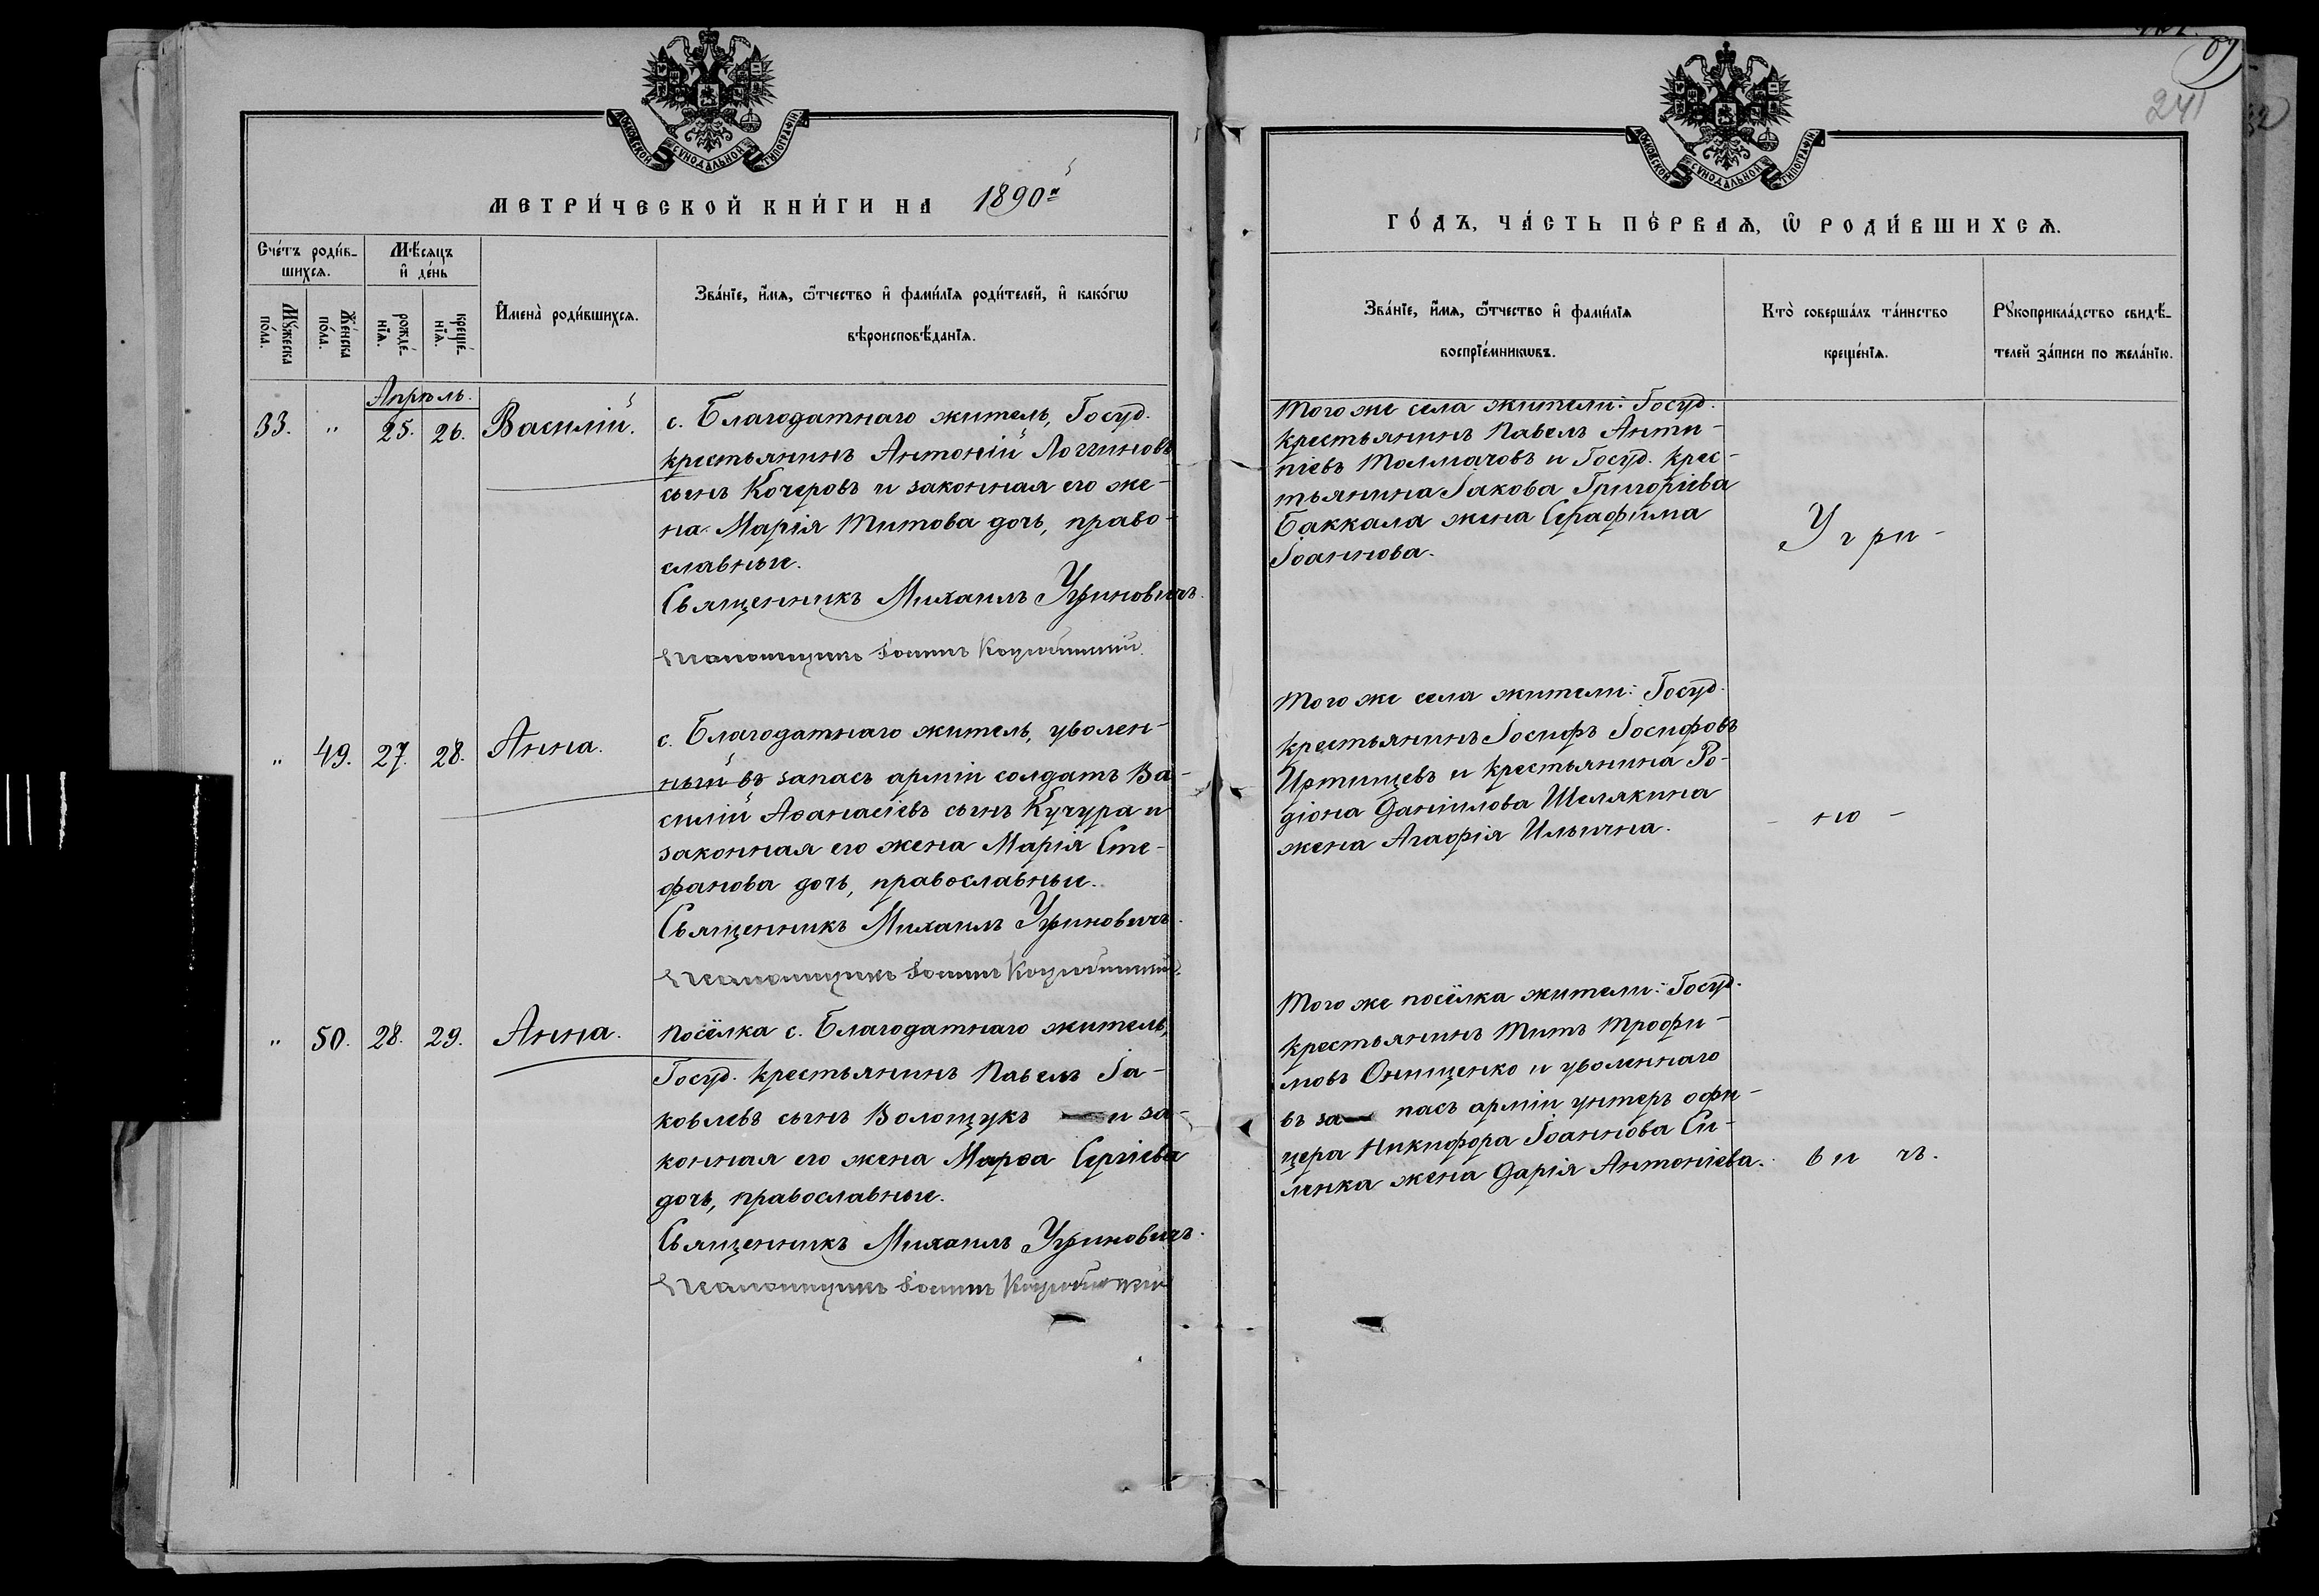 МОСКОВСКОЙ СѴНОДАЛЬНОЙ ТИПОГРАФІИ
МЕТРИ́ЧЕСКОЙ КНИ́ГИ НА 1890й
Сче́тъ роди́в-
шихсѧ.
Мꙋ́жеска
по́ла.
Же́нска
по́ла.
Мѣ́сяцъ
и҆ де́нь
рожде́-
нїѧ.
креще́-
нїѧ.
И҆мена̀ роди́вшихсѧ.
Зва́нїе, и҆́мѧ, ѻ҆́тчество и҆ фами́лїѧ роди́телей, и҆ како́гѡ
вѣроисповѣ́данїѧ.
Апрѣль.
33. " 25. 26. Василій.
с. Благодатнаго житель, Госуд.
крестьянинъ Антоній Логгиновъ
сынъ Кочеровъ и законная его же-
на Марія Титова дочь, право-
славные.
Священникъ Михаилъ Угриновичъ.
Псаломщикъ Іоаннъ
" 49. 27. 28. Анна.
с. Благодатнаго житель, уволен-
ный въ запасъ арміи солдатъ Ва-
силій Аѳанасіевъ сынъ Кучура и
законная его жена Марія Сте-
фанова дочь, православные.
Священникъ Михаилъ Угриновичъ.
Псаломщикъ Іоаннъ
" 50. 28. 29. Анна.
посёлка с. Благодатнаго житель,
Госуд. крестьянинъ Павелъ Іа-
ковлевъ сынъ Волощукъ и за-
конная его жена Марѳа Сергіева
дочь, православные.
Священникъ Михаилъ Угриновичъ.
Псаломщикъ Іоаннъ
241
МОСКОВСКОЙ СѴНОДАЛЬНОЙ ТИПОГРАФІИ
ГО́ДЪ, ЧА́СТЬ ПЕ́РВАѦ, Ѡ҆ РОДИ́ВШИХСѦ.
Зва́нїе, и҆́мѧ, ѻ҆́тчество и҆ фами́лїѧ
воспрїе́мникѡвъ.
Кто̀ соверша́лъ та́инство
креще́нїѧ.
Рꙋкоприкла́дство свидѣ́-
телей за́писи по жела́нїю.
Того же села жители: Госуд.
крестьянинъ Павелъ Анти-
піевъ Толмачовъ и Госуд. крес-
тьянина Іакова Григоріева
Баккала жена Серафима
Іоаннова.
Угри-
Того же села жители: Госуд.
крестьянинъ Іосифъ Іосифовъ
Иртищевъ и крестьянина Ро-
діона Даніилова Шелякина
жена Агафія Ильична.
- но -
Того же посёлка жители: Госуд.
крестьянинъ Титъ Трофи-
мовъ Онищенко и уволеннаго
въ за- пасъ арміи унтеръ офи-
цера Никифора Іоаннова Си-
ленка жена Дарія Антоніева.
вичъ.